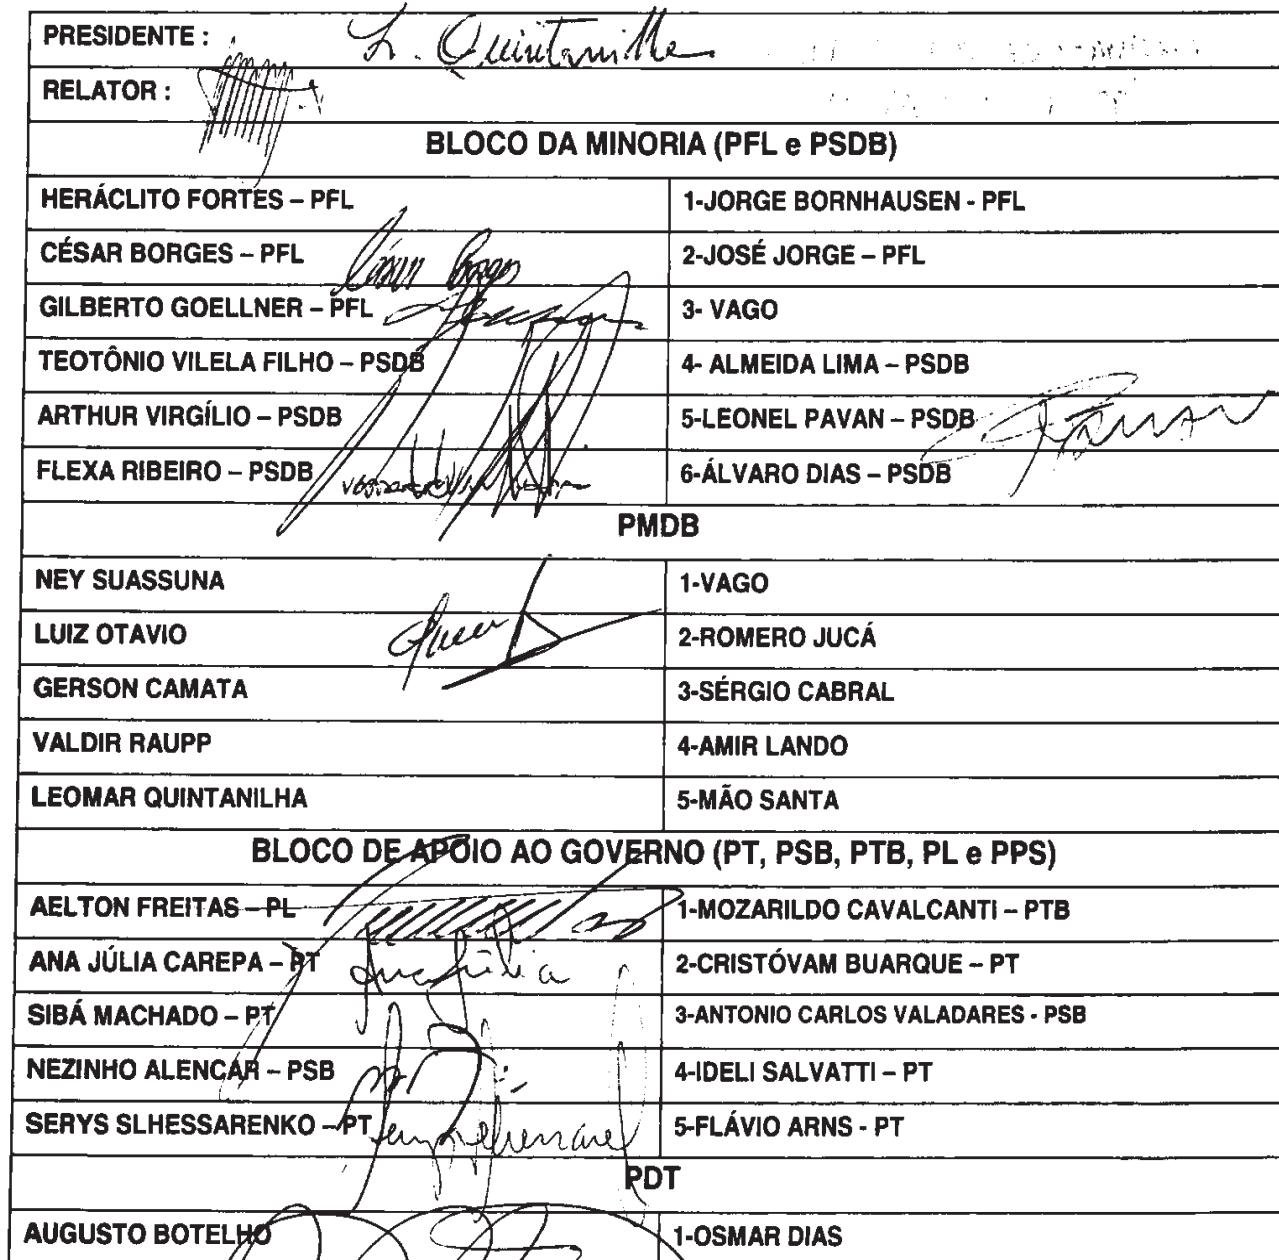 PRESIDENTE : L. Quintanilha
RELATOR :
BLOCO DA MINORIA (PFL e PSDB)
HERÁCLITO FORTES – PFL 1-JORGE BORNHAUSEN - PFL
CÉSAR BORGES – PFL César Borges 2-JOSÉ JORGE – PFL
GILBERTO GOELLNER – PFL 3- VAGO
TEOTÔNIO VILELA FILHO – PSDB 4- ALMEIDA LIMA – PSDB
ARTHUR VIRGÍLIO – PSDB 5-LEONEL PAVAN – PSDB Pavan
FLEXA RIBEIRO – PSDB 6-ÁLVARO DIAS – PSDB
PMDB
NEY SUASSUNA 1-VAGO
LUIZ OTAVIO 2-ROMERO JUCÁ
GERSON CAMATA 3-SÉRGIO CABRAL
VALDIR RAUPP 4-AMIR LANDO
LEOMAR QUINTANILHA 5-MÃO SANTA
BLOCO DE APOIO AO GOVERNO (PT, PSB, PTB, PL e PPS)
AELTON FREITAS – PL 1-MOZARILDO CAVALCANTI – PTB
ANA JÚLIA CAREPA – PT Ana Júlia 2-CRISTÓVAM BUARQUE – PT
SIBÁ MACHADO – PT 3-ANTONIO CARLOS VALADARES - PSB
NEZINHO ALENCAR – PSB 4-IDELI SALVATTI – PT
SERYS SLHESSARENKO – PT 5-FLÁVIO ARNS - PT
PDT
AUGUSTO BOTELHO 1-OSMAR DIAS